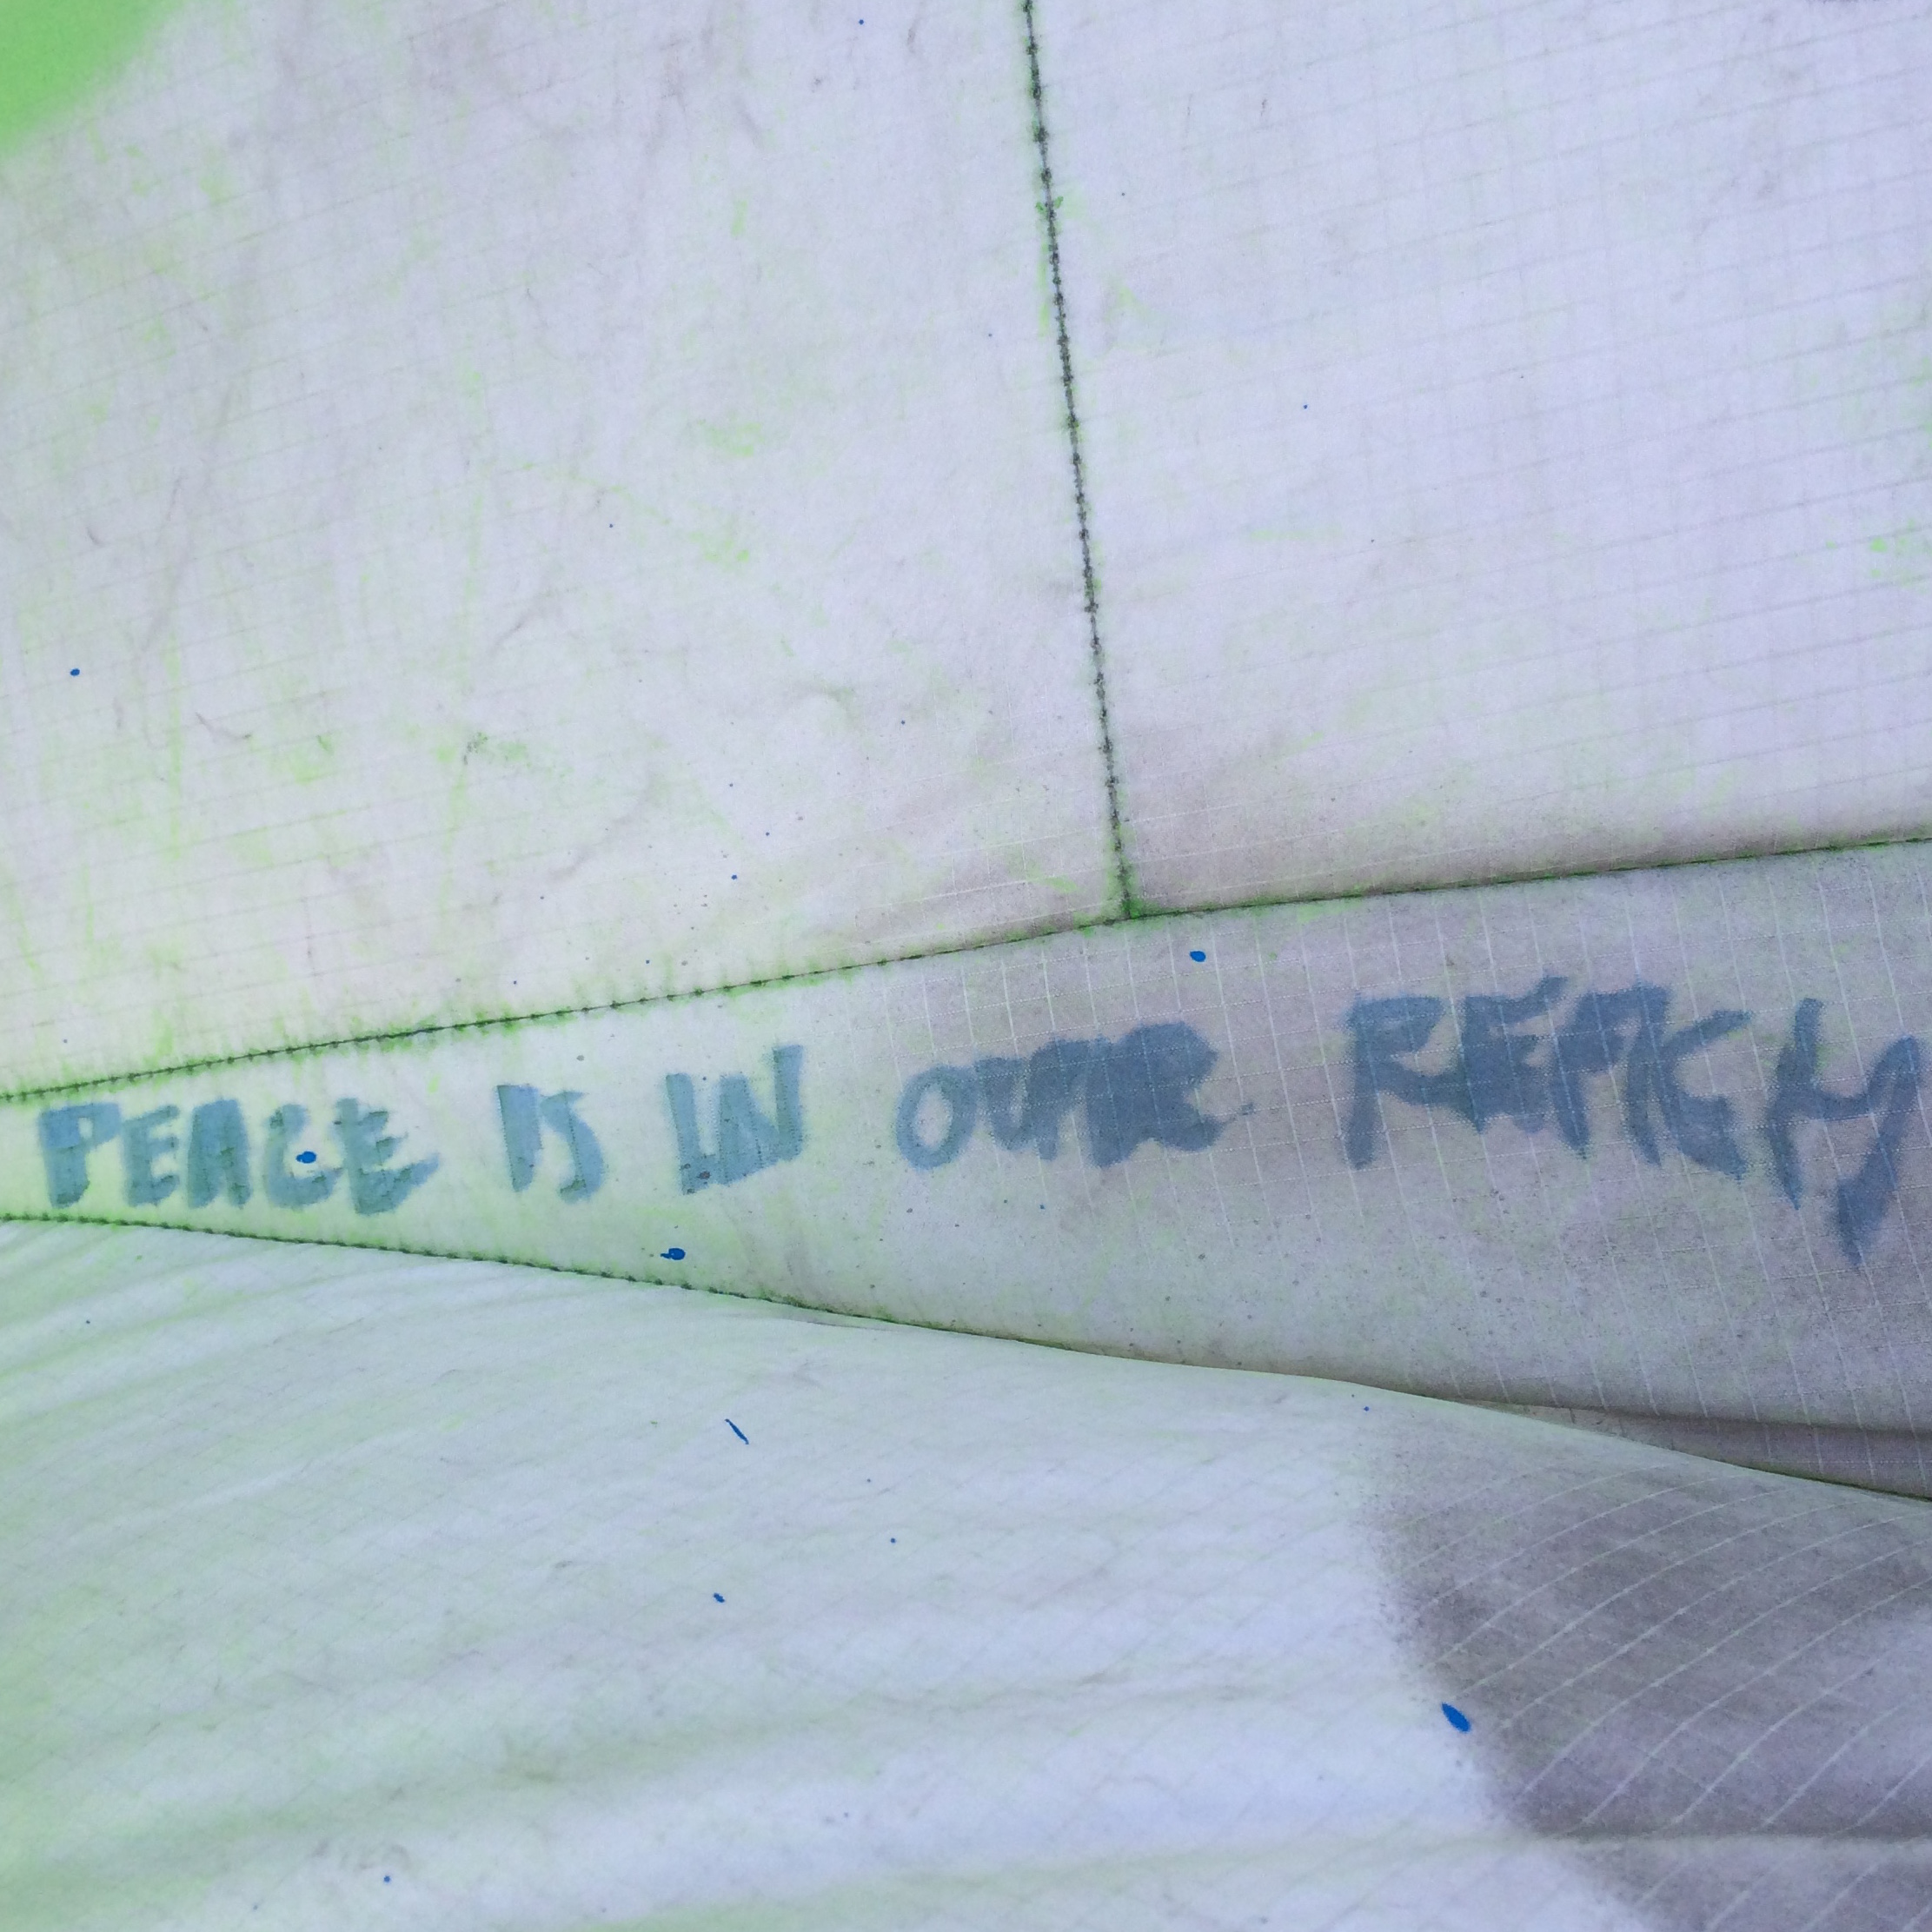 PEACE IS IN OUR REACH